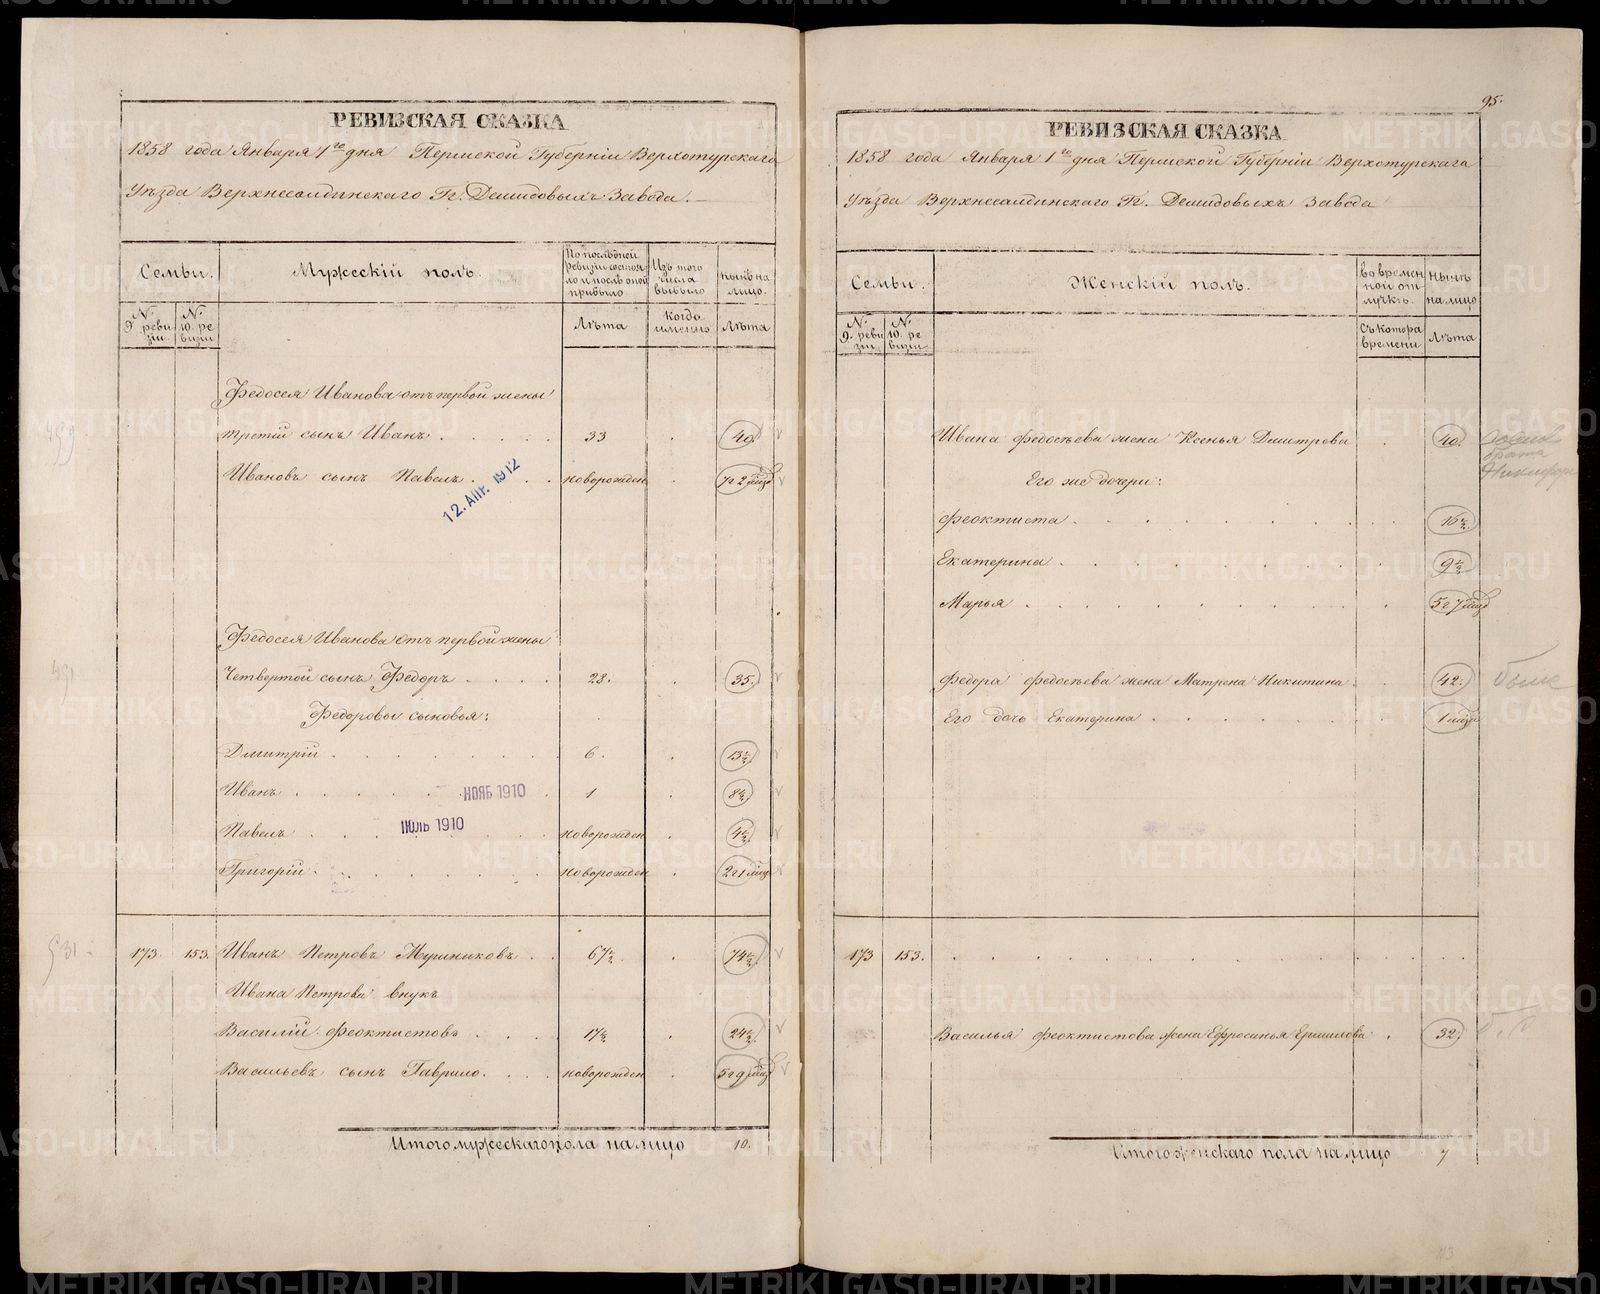 РЕВИЗСКАЯ СКАЗКА
1858 года Января 1го дня Пермской Губерніи Верхотурскаго
Уѣзда Верхнесалдинскаго Гг. Демидовыхъ Завода.
Семьи.
Мужескій полъ.
По послѣдней ревизіи состояло и послѣ оной прибыло
Изъ того числа выбыло
нынѣ на лицо.
N. 9. ревизіи
N. 10. ревизіи
Лѣта
Когда именно
Лѣта
Федосея Иванова отъ первой жены
третій сынъ Иванъ 33 40
Ивановъ сынъ Павелъ новорожден 7г 2 мѣс
12. АПР. 1912
Федосея Иванова отъ первой жены
Четвертой сынъ Федоръ 28. 35.
Федоровы сыновья:
Дмитрій 6. 13½
Иванъ 1 8½
НОЯБ 1910
Павелъ новорожден 4½
ІЮЛЬ 1910
Григорій новорожден 2г 1 мѣс
531
173. 153. Иванъ Петровъ Мушниковъ 67½ 74½
Ивана Петрова внукъ
Василій Феоктистовъ 17½ 24½
Васильевъ сынъ Гаврило новорожден 5г 9 мѣс
Итого мужескаго пола на лицо 10.
95.
РЕВИЗСКАЯ СКАЗКА
1858 года Января 1го дня Пермской Губерніи Верхотурскаго
Уѣзда Верхнесалдинскаго Гг. Демидовыхъ Завода
Семьи.
Женскій полъ.
во временной отлучкѣ.
нынѣ на лицо
N. 9. ревизіи
N. 10. ревизіи
Съ котора времени
Лѣта
Ивана Федосѣева жена Ксенья Дмитрова 40.
брата
Никифор
Его же дочери:
Феоктиста 16½
Екатерина 9½
Марья 5г 7 мѣс
Федора Федосѣева жена Матрена Никитина 42.
Его дочь Екатерина 1 мѣс
173 153.
Василья Феоктистова жена Ефросинья Ермилова 32.
Итого женскаго пола на лицо 7
METRIKI.GASO-URAL.RU